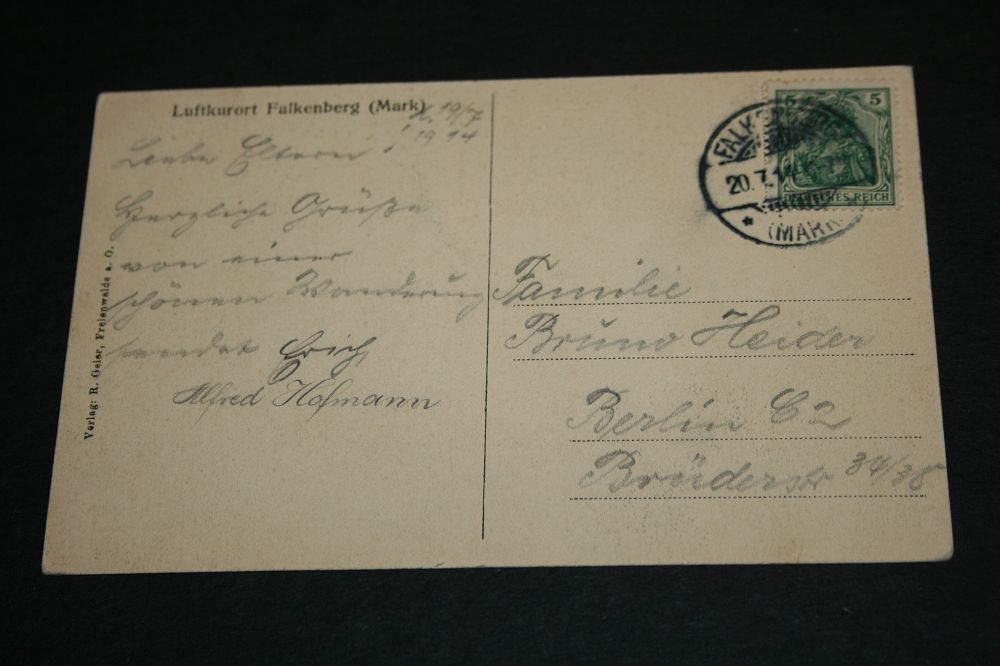 Luftkurort Falkenberg (Mark)
d. 19/7
1914
Liebe Eltern!
Herzliche Grüße
von einer
schönen Wanderung
sendet Erich
Alfred Hofmann
Verlag: R. Geier, Freienwalde a. O.
5 5
DEUTSCHES REICH
FALKENBERG
20.7.14
* (MARK)
Familie
Bruno Heider
Berlin C2
Brüderstr 34/38